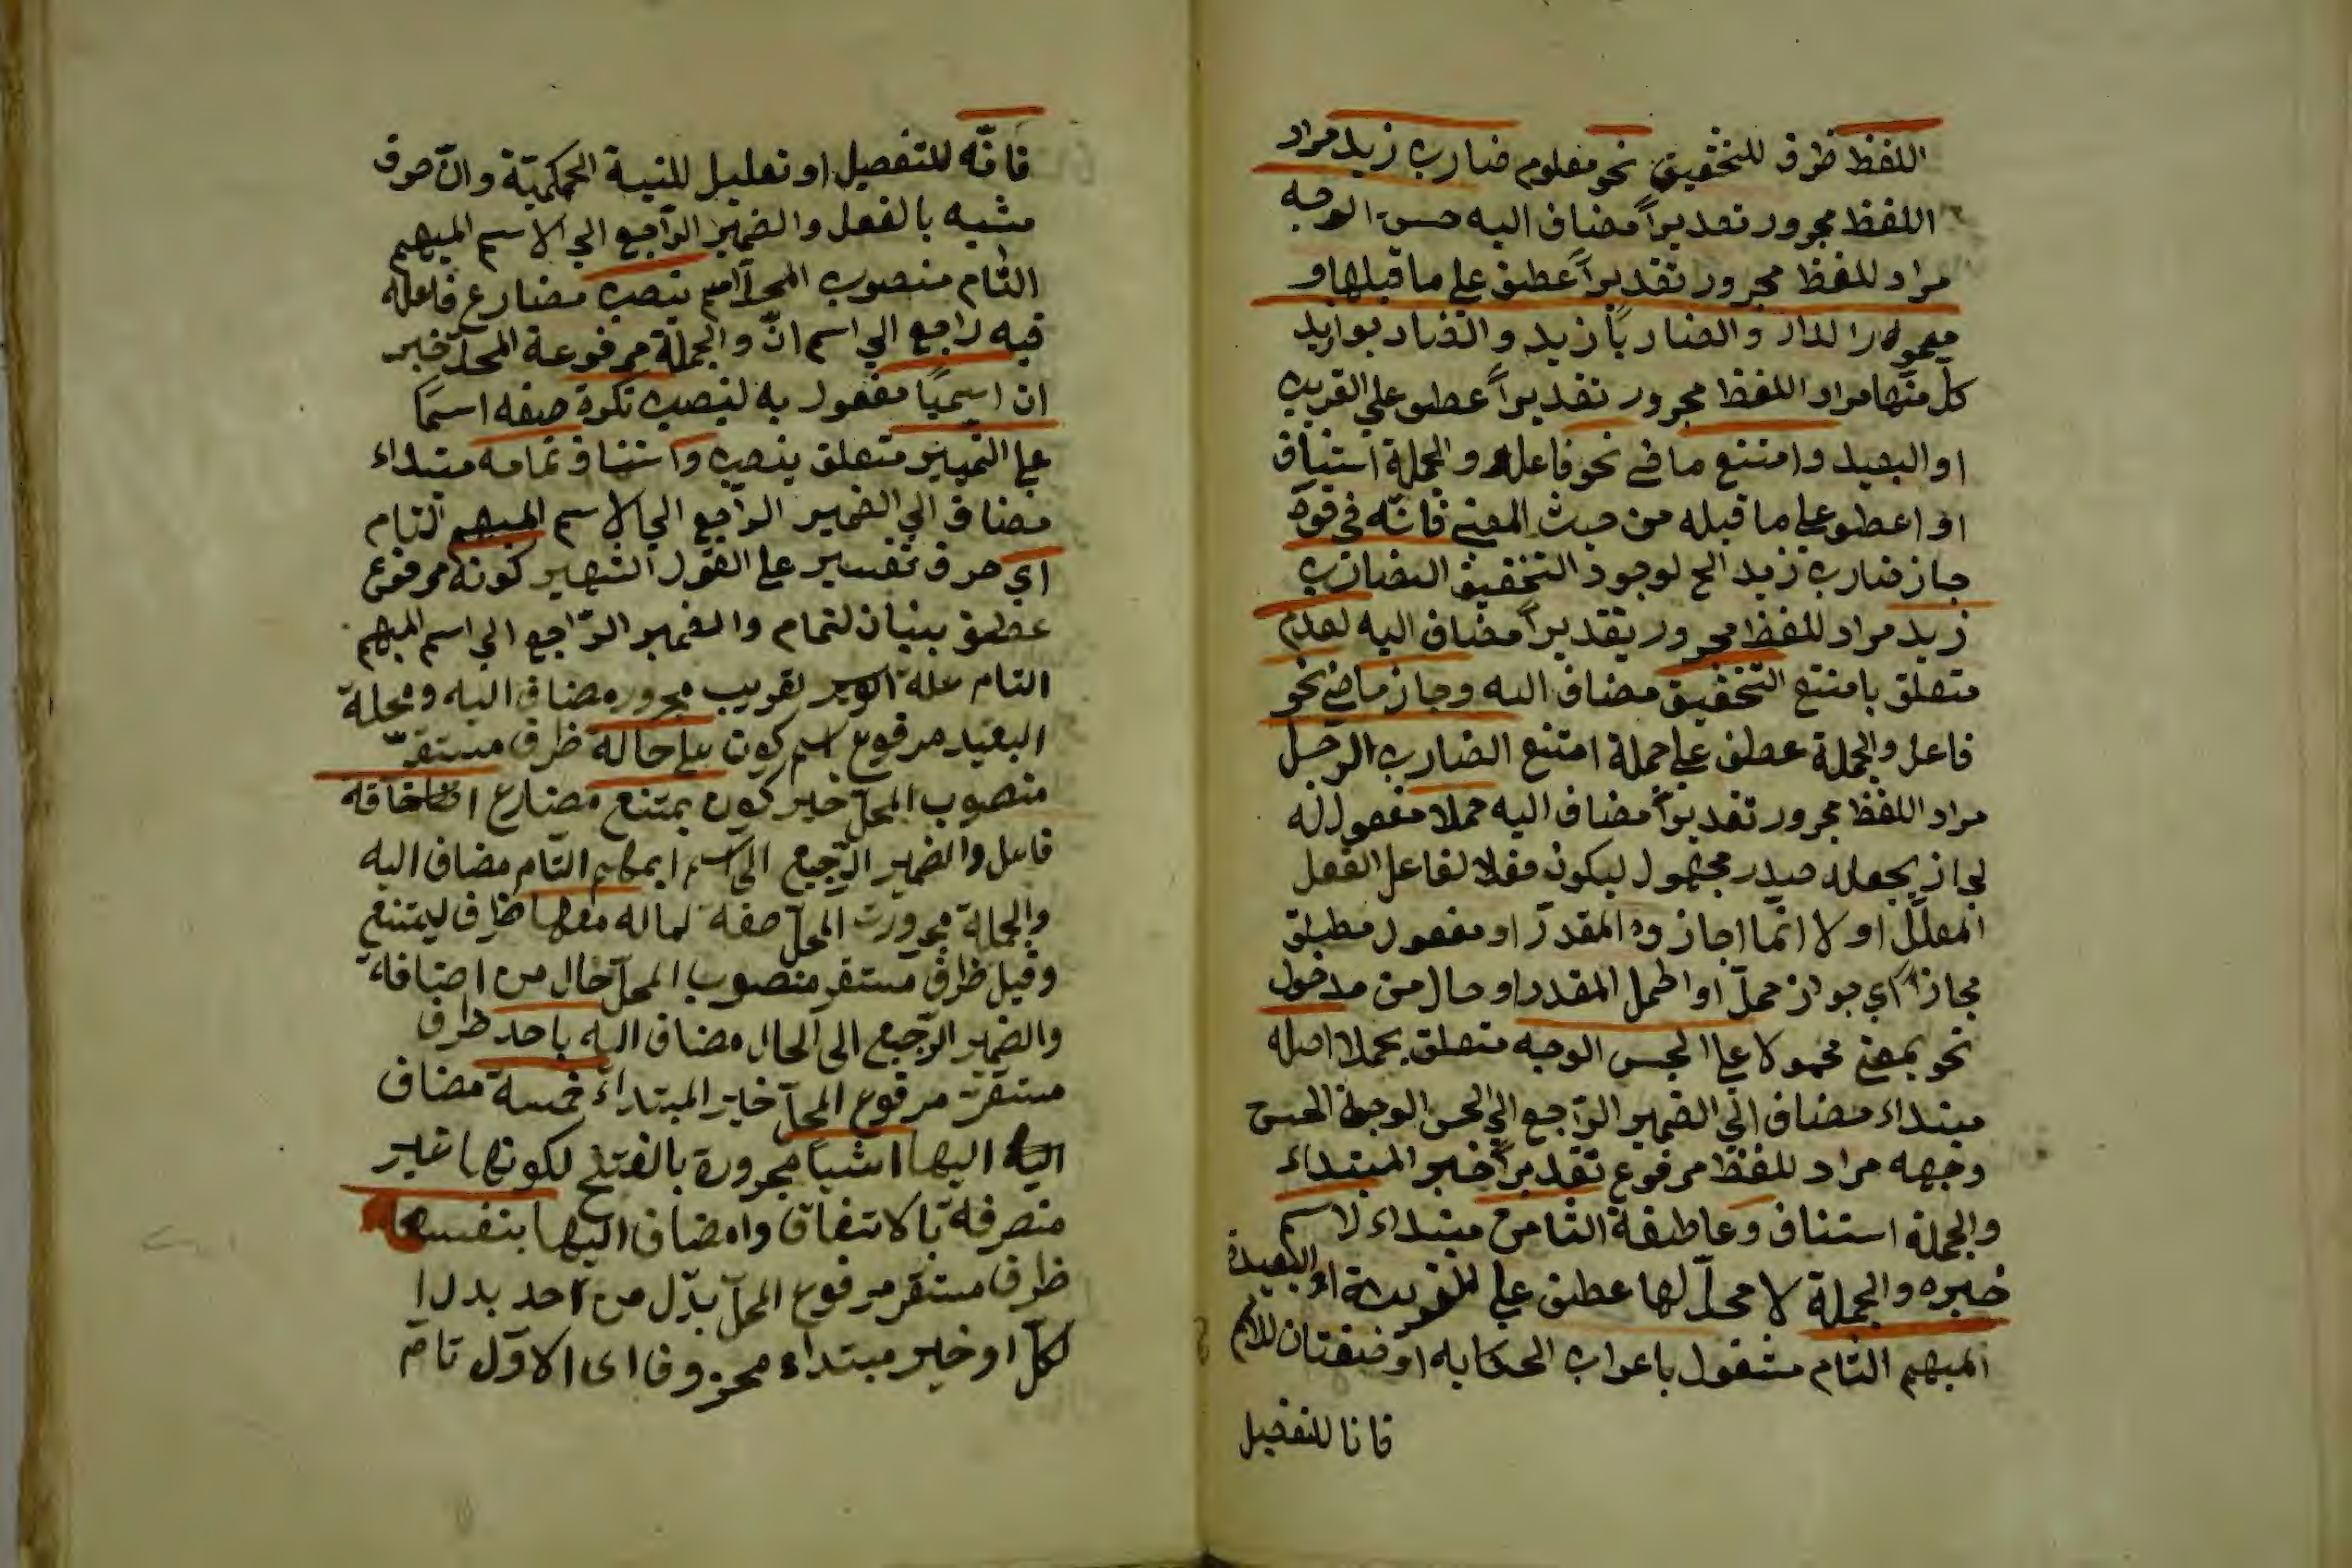 اللفظ ظرف للتخفيق نحو معلوم ضارب زيد مراد
اللفظ مجرور تقديراً مضاف اليه حسن الوجه
مراد للفظ مجرور تقديراً عطف على ما قبلها و
والضاربا زيد
كل منها مراد اللفظ مجرور تقديراً عطف على القريب
او البعيد وامتنع ماض نحو فاعله والجملة استيناف
او عطف على ما قبله من حيث المعنى فانه في قوة
جاز ضارب زيد الخ لوجود التخفيق الضارب
زيد مراد للفظ مجرور تقديراً مضاف اليه لعدم
متعلق بامتنع التخفيق مضاف اليه وجاز ماض نحو
فاعل والجملة عطف على جملة امتنع الضارب الرجل
مراد اللفظ مجرور تقديراً مضاف اليه حملا مفعول له
لجاز بجعله مصدر مجهول ليكون فعلا لفاعل الفعل
المعلل او لا انما اجازوه المقدر او مفعول مطلق
مجازا اي جواز حمل او احمل المقدر او حال من مدخول
نحو بمعنى محمولا على الحسن الوجه متعلق بحملا اصله
مبتداء مضاف الى الضمير الراجع الى الحسن الوجه الحسن
وجهه مراد للفظ مرفوع تقديراً خبر المبتداء
والجملة استناف وعاطفة الثامن مبتداء لاسم
خبره والجملة لا محل لها عطف على القريبة او البعيدة
المبهم التام مشغول باعراب الحكايه او صفتان للاسم
فانا للتفصيل
فانه للتفصيل او تعليل للنسبة الحكمية وان حرف
مشبه بالفعل والضمير الراجع الى الاسم المبهم
التام منصوب المحل اسم ينصب مضارع فاعله
فيه راجع الى اسم ان والجملة مرفوعة المحل خبر
ان اسميا مفعول به لينصب نكرة صفه اسما
على التمييز متعلق بنصب واستناف تمامه مبتداء
مضاف الى الضمير الراجع الى الاسم المبهم التام
اي حرف تفسير على القول الشهير كونه مرفوع
عطف بينان لتمام والضمير الراجع الى اسم المبهم
التام علة لقريب مجروره مضاف اليه ومحلة
البعيد مرفوع اسم كون على حاله ظرف مستقر
منصوب المحل خبر كون يمتنع مضارع اضافه
فاعل والضمير الرجيع الى اسم المبهم التام مضاف اليه
والجملة مجرورت المحل صفة لماله معها ظرف ليمتنع
وقيل ظرف مستقر منصوب المحل حال من اضافه
والضمير الرجيع الى الحال مضاف اليه باحد ظرف
مستقر مرفوع المحل خبر المبتداء خمسة مضاف
اليه اليها اشيا مجرورة بالفتح لكونها غير
منصرفة بالاتفاق وامضاف اليها بنفسها
ظرف مستقر مرفوع المحل بدل من احد بدل ا
لكل او خبر مبتداء محزوف اى الاول تام